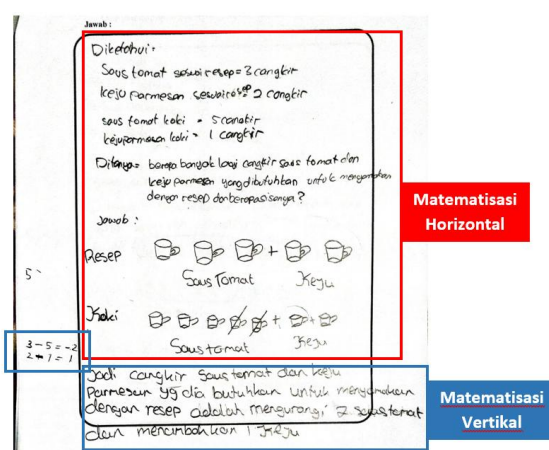 Jawab :
Diketahui :
Saus tomat sesuai resep = 3 cangkir
keju parmesan sesuai resep = 2 cangkir
saus tomat koki = 5 cangkir
keju parmesan koki = 1 cangkir
Ditanya = berapa banyak lagi cangkir saus tomat dan
keju parmesan yang dibutuhkan untuk menyamakan
dengan resep dan berapa sisanya ?
Jawab :
Resep +
Saus Tomat Keju
5
Koki + +
Saus tomat Keju
3 - 5 = -2
2 - 1 = 1
Jadi cangkir saus tomat dan keju
Parmesan yg dia butuhkan untuk menyamakan
dengan resep adalah mengurangi 2 saus tomat
dan menambahkan 1 keju
Matematisasi
Horizontal
Matematisasi
Vertikal